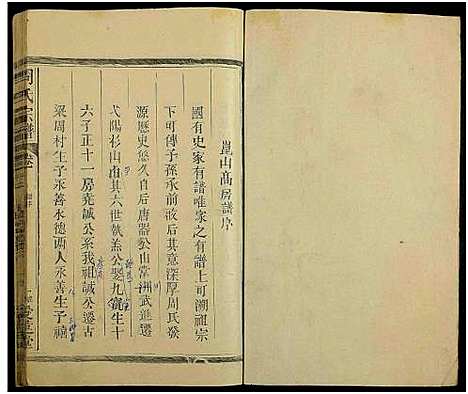 崑山髙房譜序
國有史家有譜唯家之有譜上可溯祖宗
下可傳子孫承前啟后其意深厚周氏發
源歷史悠久自后唐器公山常洲武進遷
弋陽杉山南其六世執羔公娶九寳生十
六子正十一房堯誠公系我祖誠公遷古
梁周村生子永善永德两人永善生子禧
周氏宗譜